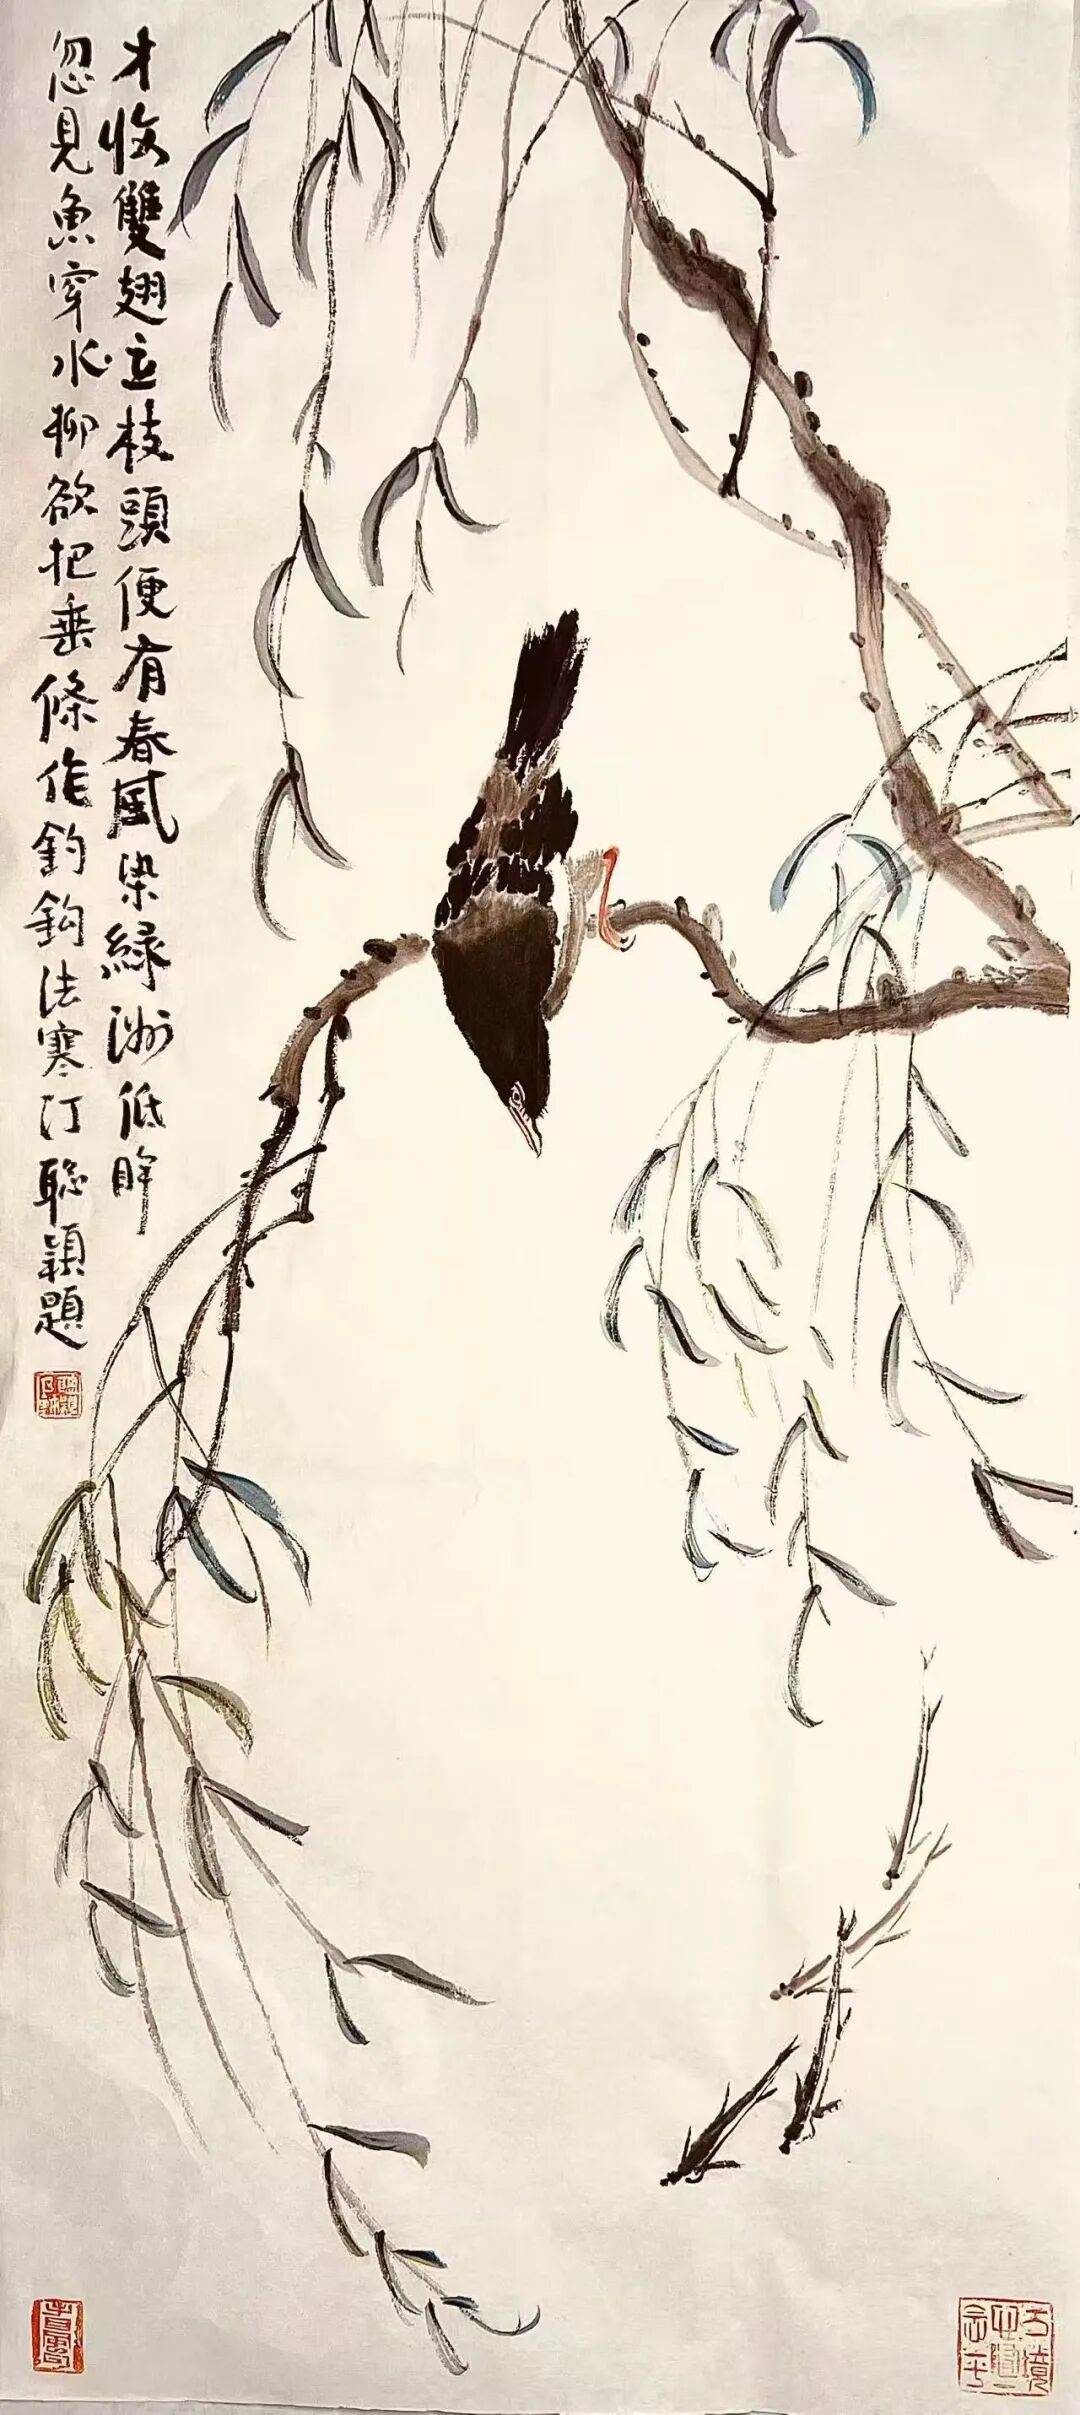 才收雙翅立枝頭便有春風染綠洲低眸
忽見魚穿水柳欲把垂條作釣鈎法寒汀聰穎題